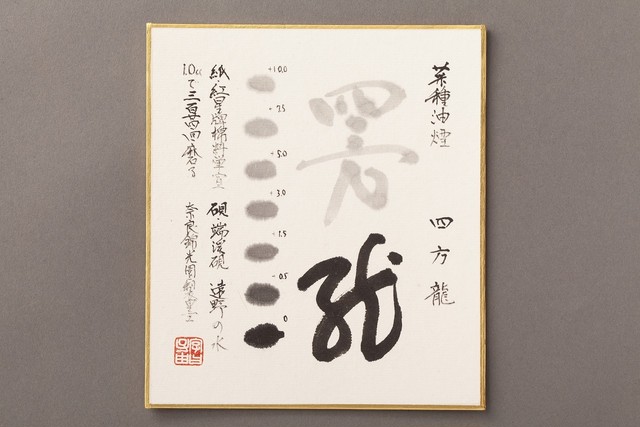 菜種油煙 四方龍
四方
龍
+10.0
7.5
+5.0
+3.0
+1.5
+0.5
0
紙・紅星牌棉料単宣 硯・端渓硯 遠野の水
で三百 回磨る 奈良錦光園製墨